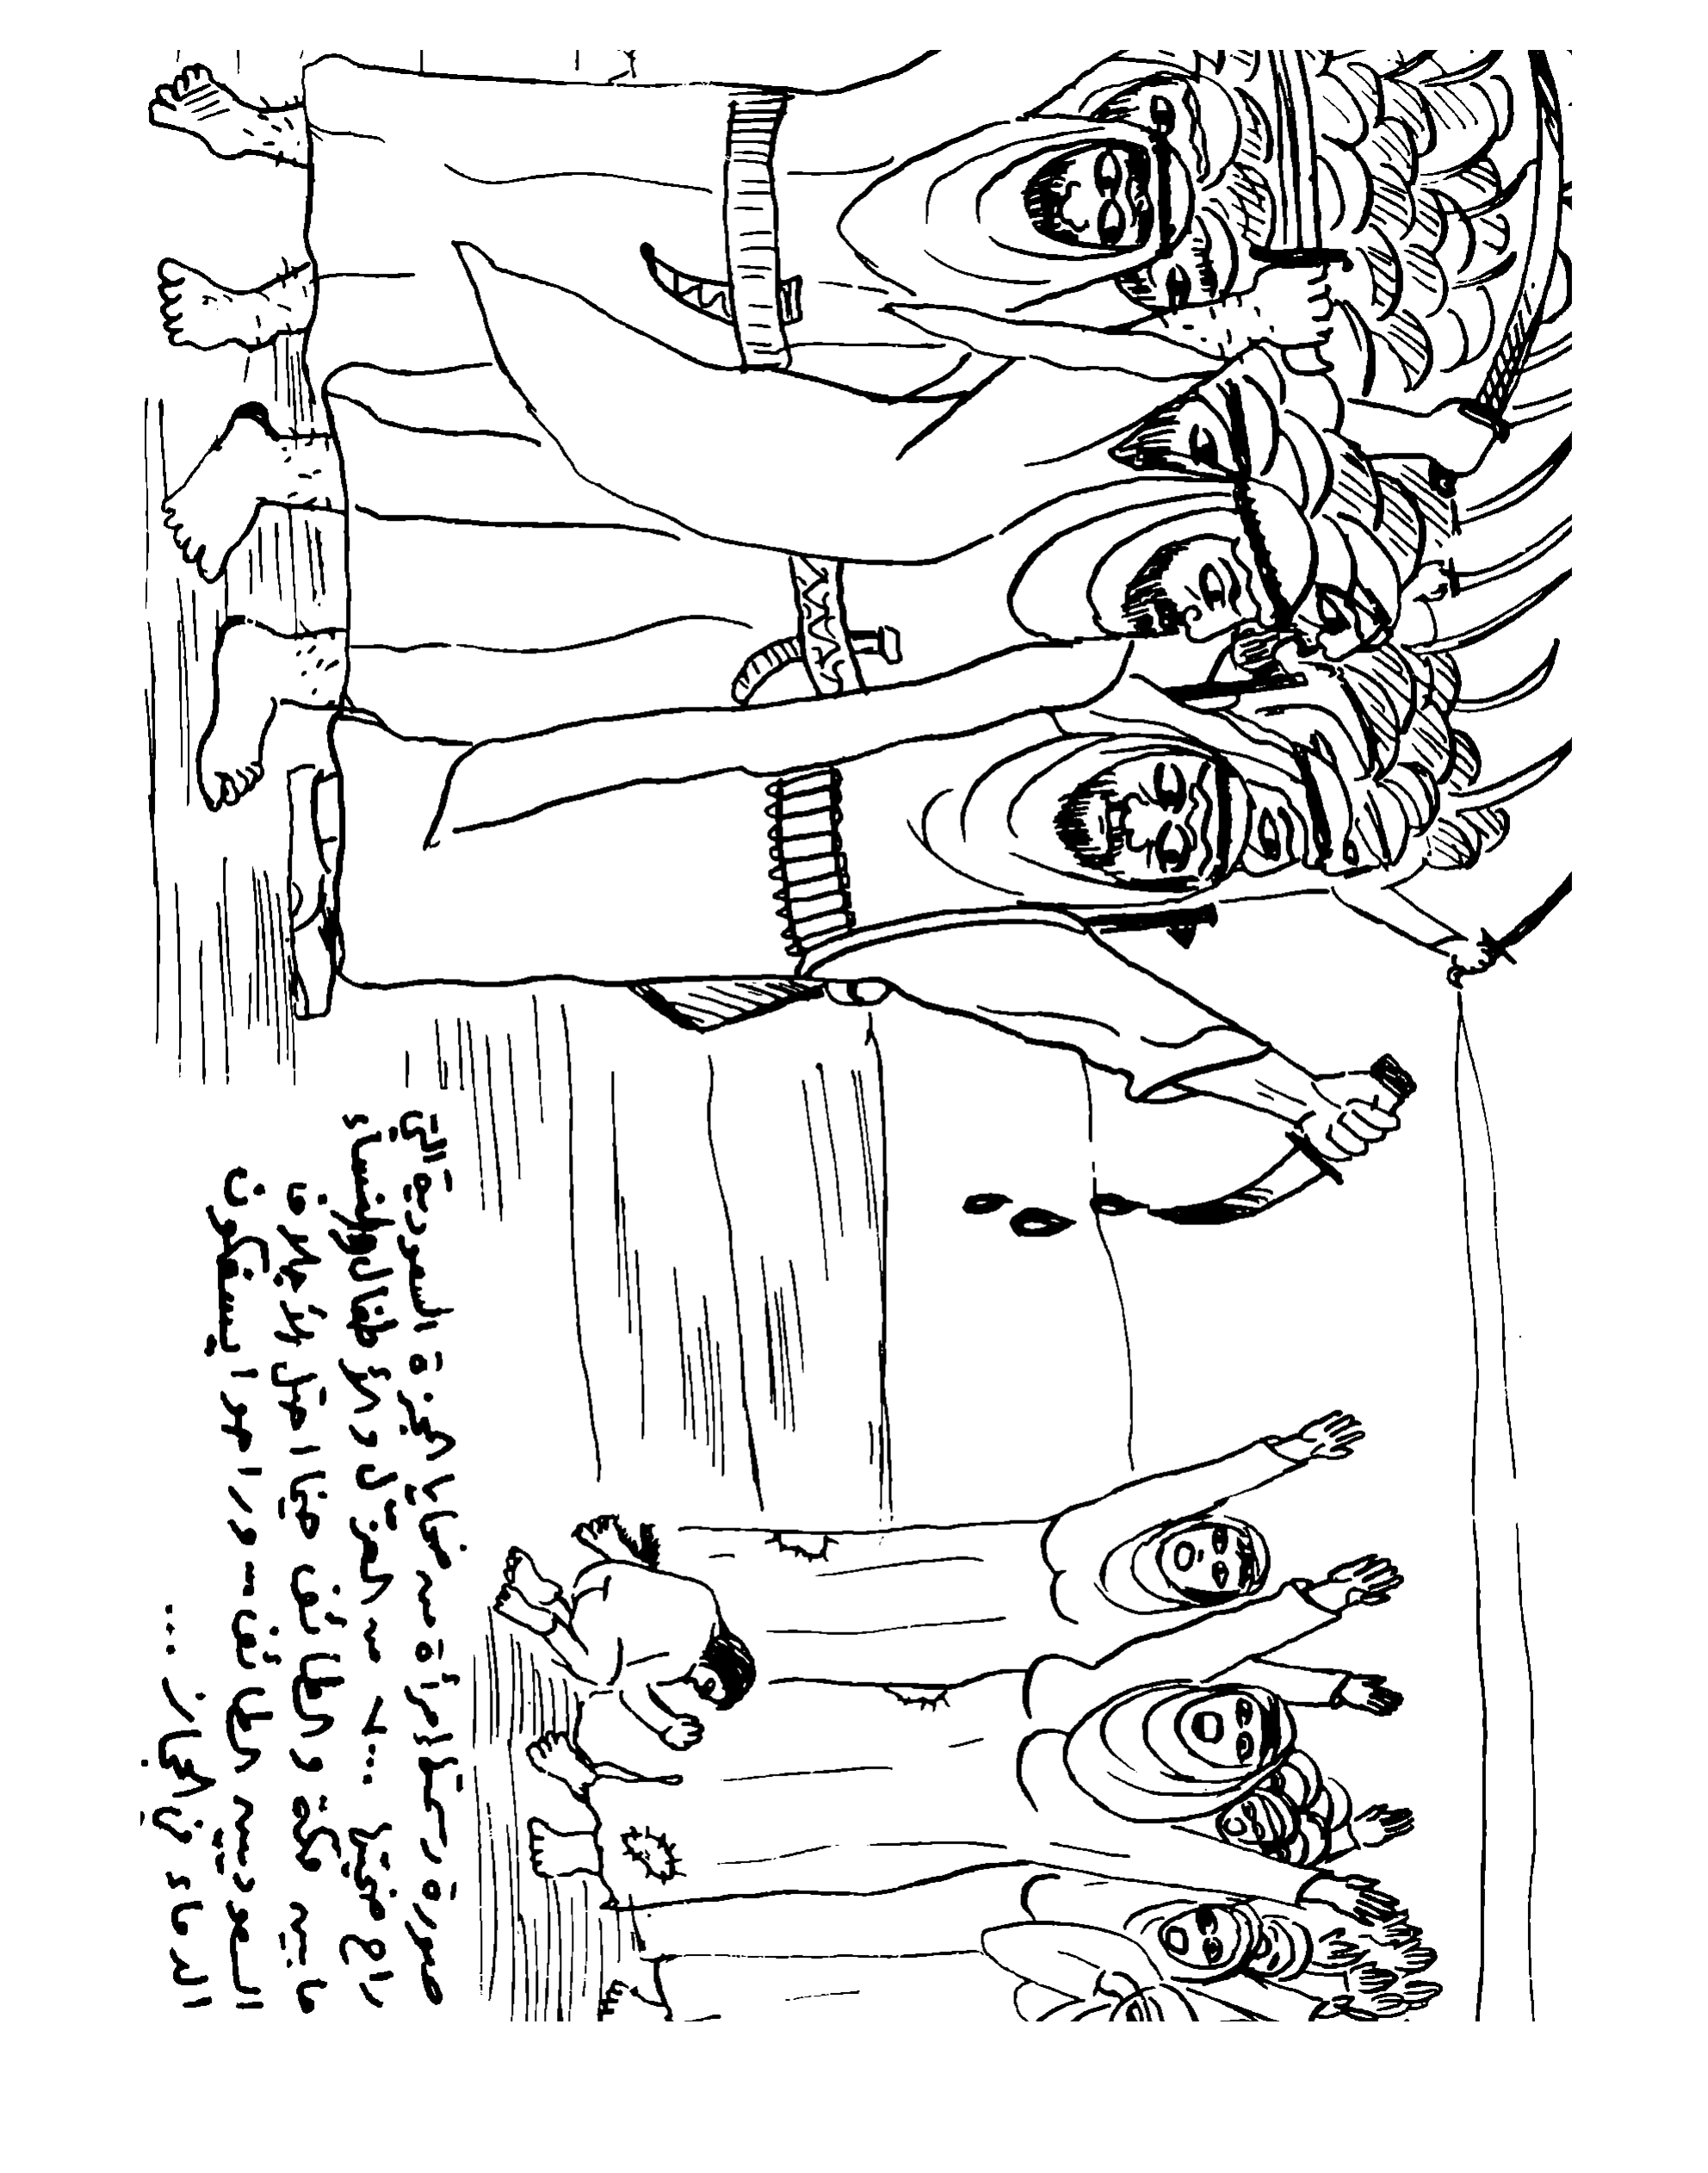 صورة رسمتها امرأة من ضحايا المجزرة السعودية التي
راح ضحيتها ٧٠٠٠ من العزّل والأطفال والنساء
ما بين مكة والطائف هذا قبل
السعوديين الطائف — وراحوا يسفكون
الدماء في الحجاز ...